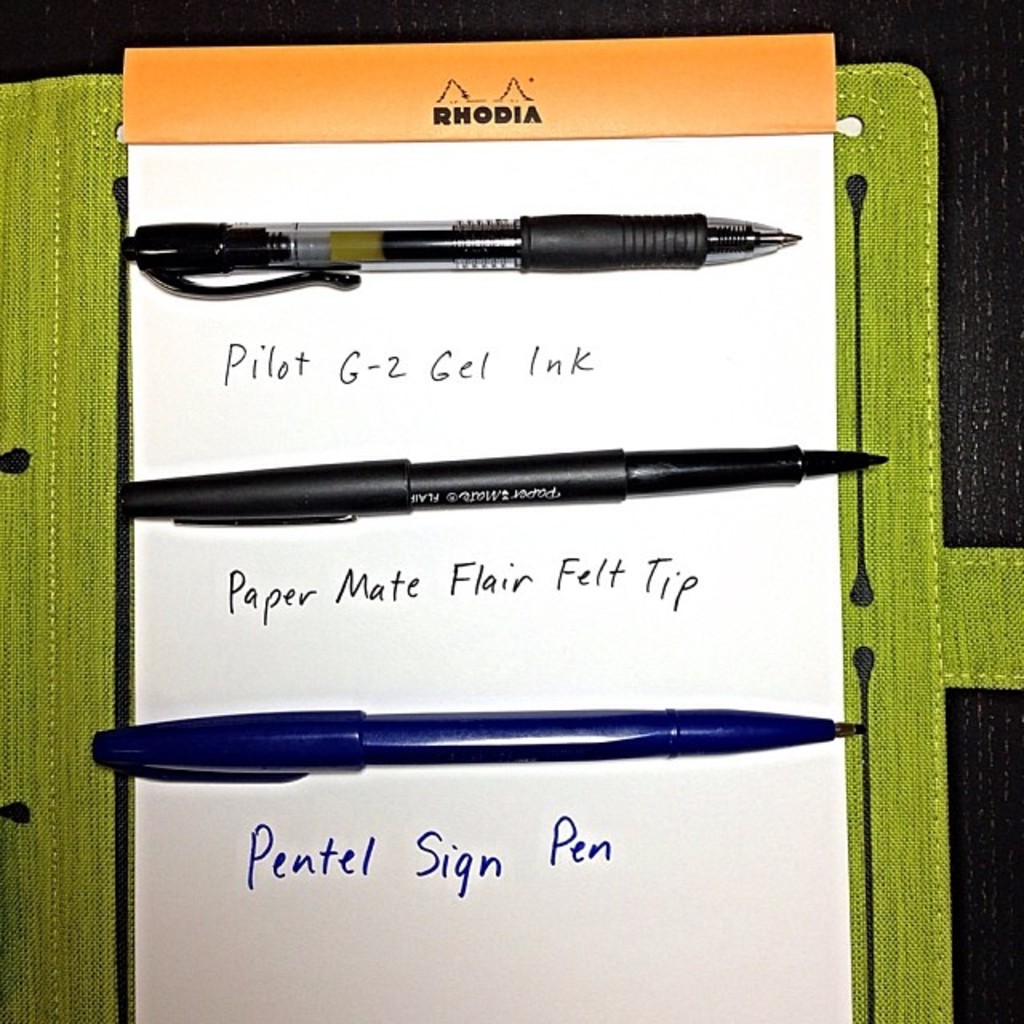 RHODIA
Pilot G-2 Gel Ink
Paper Mate® FLAIR
Paper Mate Flair Felt Tip
Pentel Sign Pen